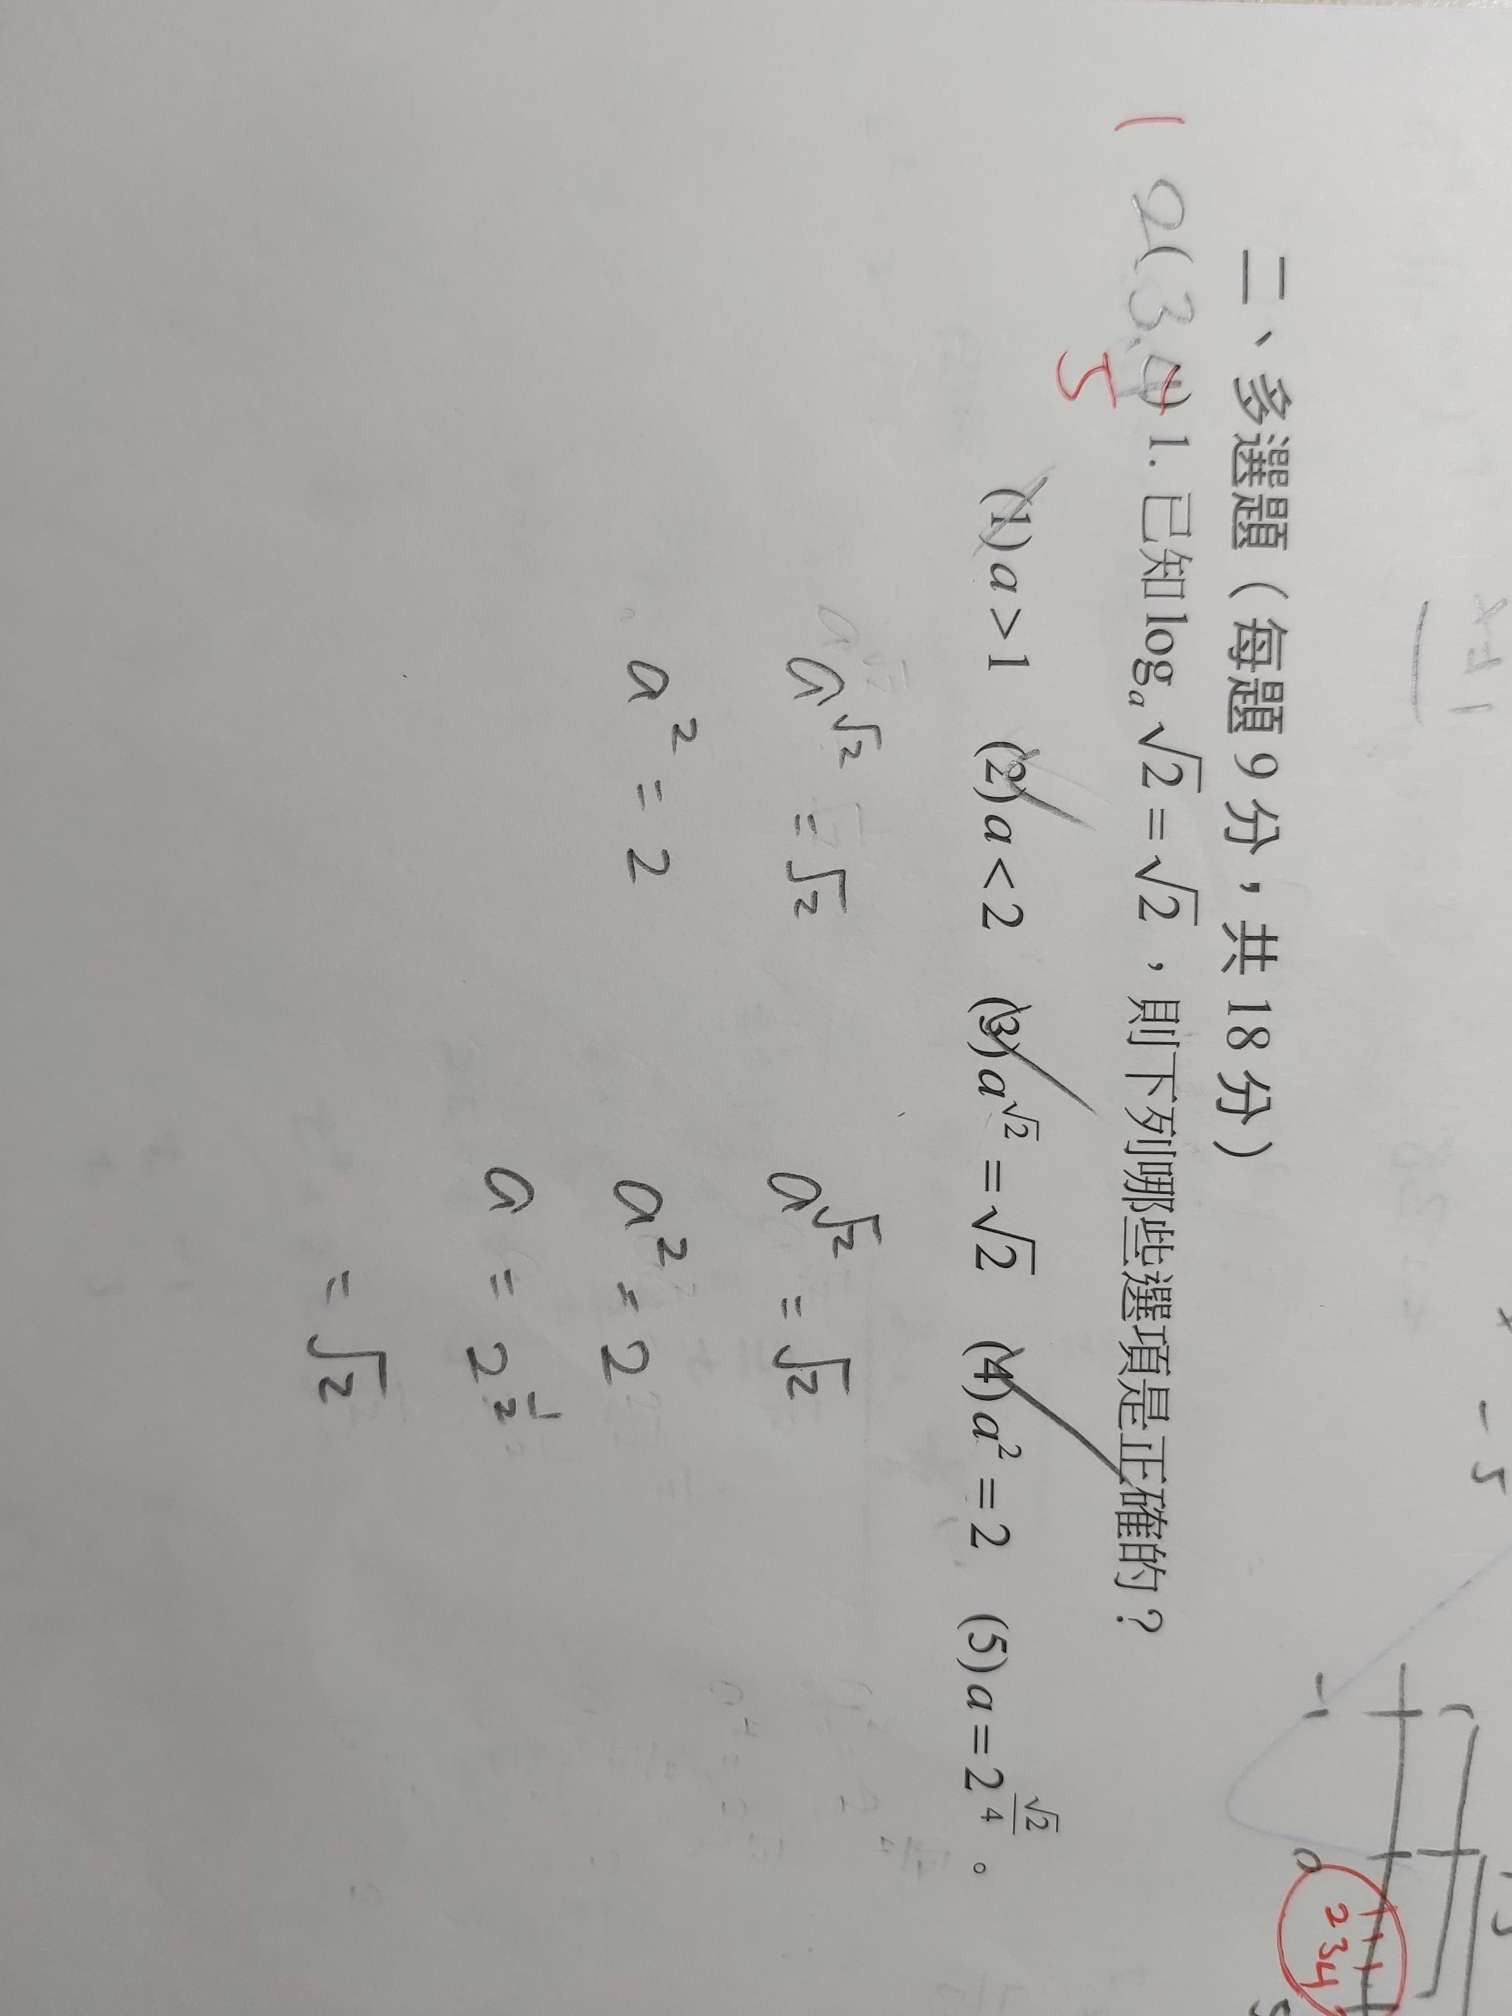 二、多選題（每題 9 分，共 18 分）
1 2( 3,4) 1. 已知 logₐ√2 = √2，則下列哪些選項是正確的？
5
(1) a > 1 (2) a < 2 (3) a^√2 = √2 (4) a² = 2 (5) a = 2^(√2/4)。
a^√2 = √2
a² = 2
a^√2 = √2
a² = 2
a = 2^(1/2)
= √2
-5
-1 0
2 3 4